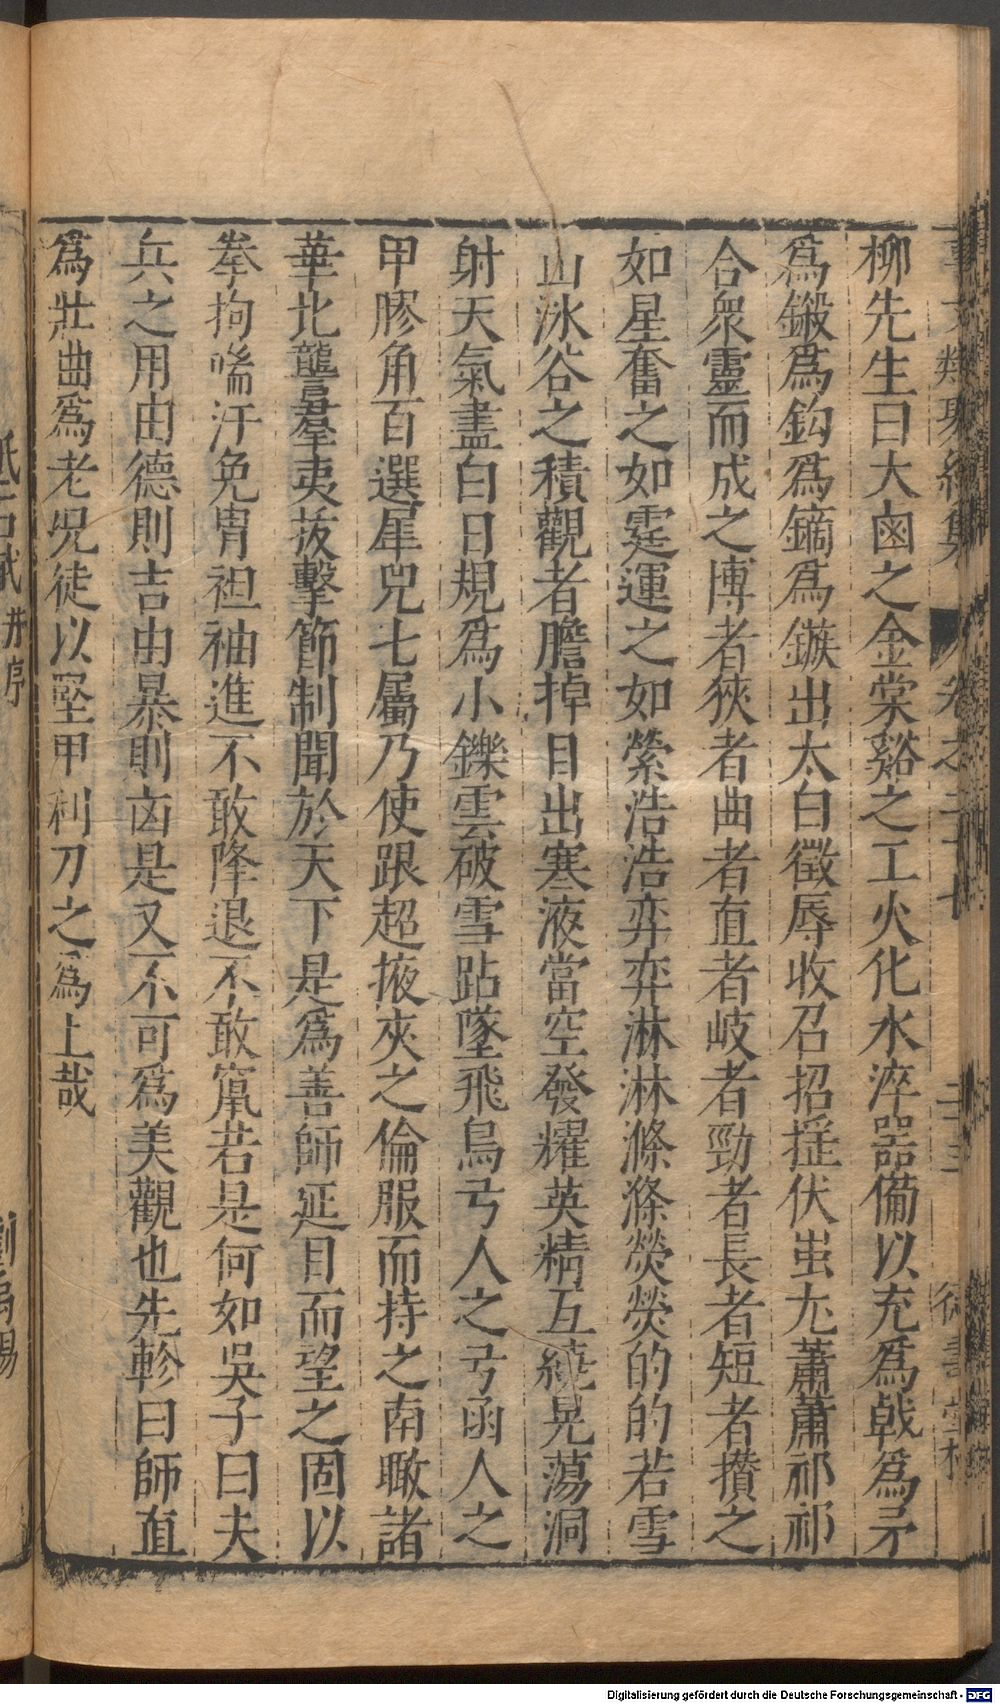 柳先生曰大鹵之金棠谿之工火化水淬器備以充爲戟爲矛
爲鍛爲鈎爲鏑爲鏃出太白徵辱收召招揺伏蚩尢蕭蕭祁祁
合衆靈而成之博者狹者曲者直者岐者勁者長者短者攢之
如星奮之如霆運之如縈浩浩弈弈淋淋滌滌熒熒的的若雪
山冰谷之積觀者膽掉目出寒液當空發耀英精互繞晃蕩洞
射天氣盡白日規爲小鑠雲破雪跕墜飛鳥弓人之弓函人之
甲膠角百選犀兕七屬乃使跟超掖夾之倫服而持之南瞰諸
華北讋羣夷拔擊節制聞於天下是爲善師延目而望之固以
拳拘喘汗免胄袒袖進不敢降退不敢竄若是何如吳子曰夫
兵之用由德則吉由暴則凶是又不可爲美觀也先軫曰師直
爲壯曲爲老况徒以堅甲利刀之爲上哉
砥石賦并序
劉禹錫
Digitalisierung gefördert durch die Deutsche Forschungsgemeinschaft - DFG